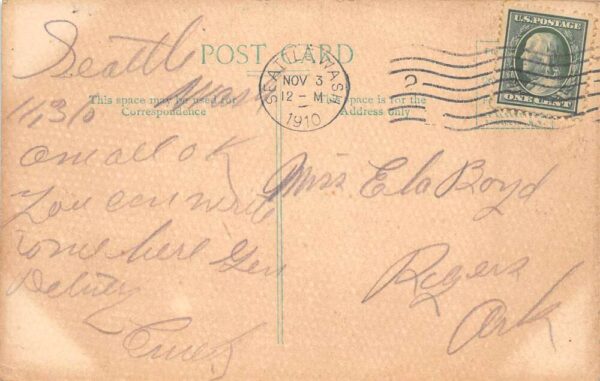 Seattle
Wash
POST CARD
U.S. POSTAGE
ONE CENT
SEATTLE, WASH
NOV 3
12-M
1910
2
This space may be used for
Correspondence
This space is for the
Address only
11/3/0
am all ok
You can write
to me here Gen
Delivery
Miss Ela Boyd
Rogers
Ark